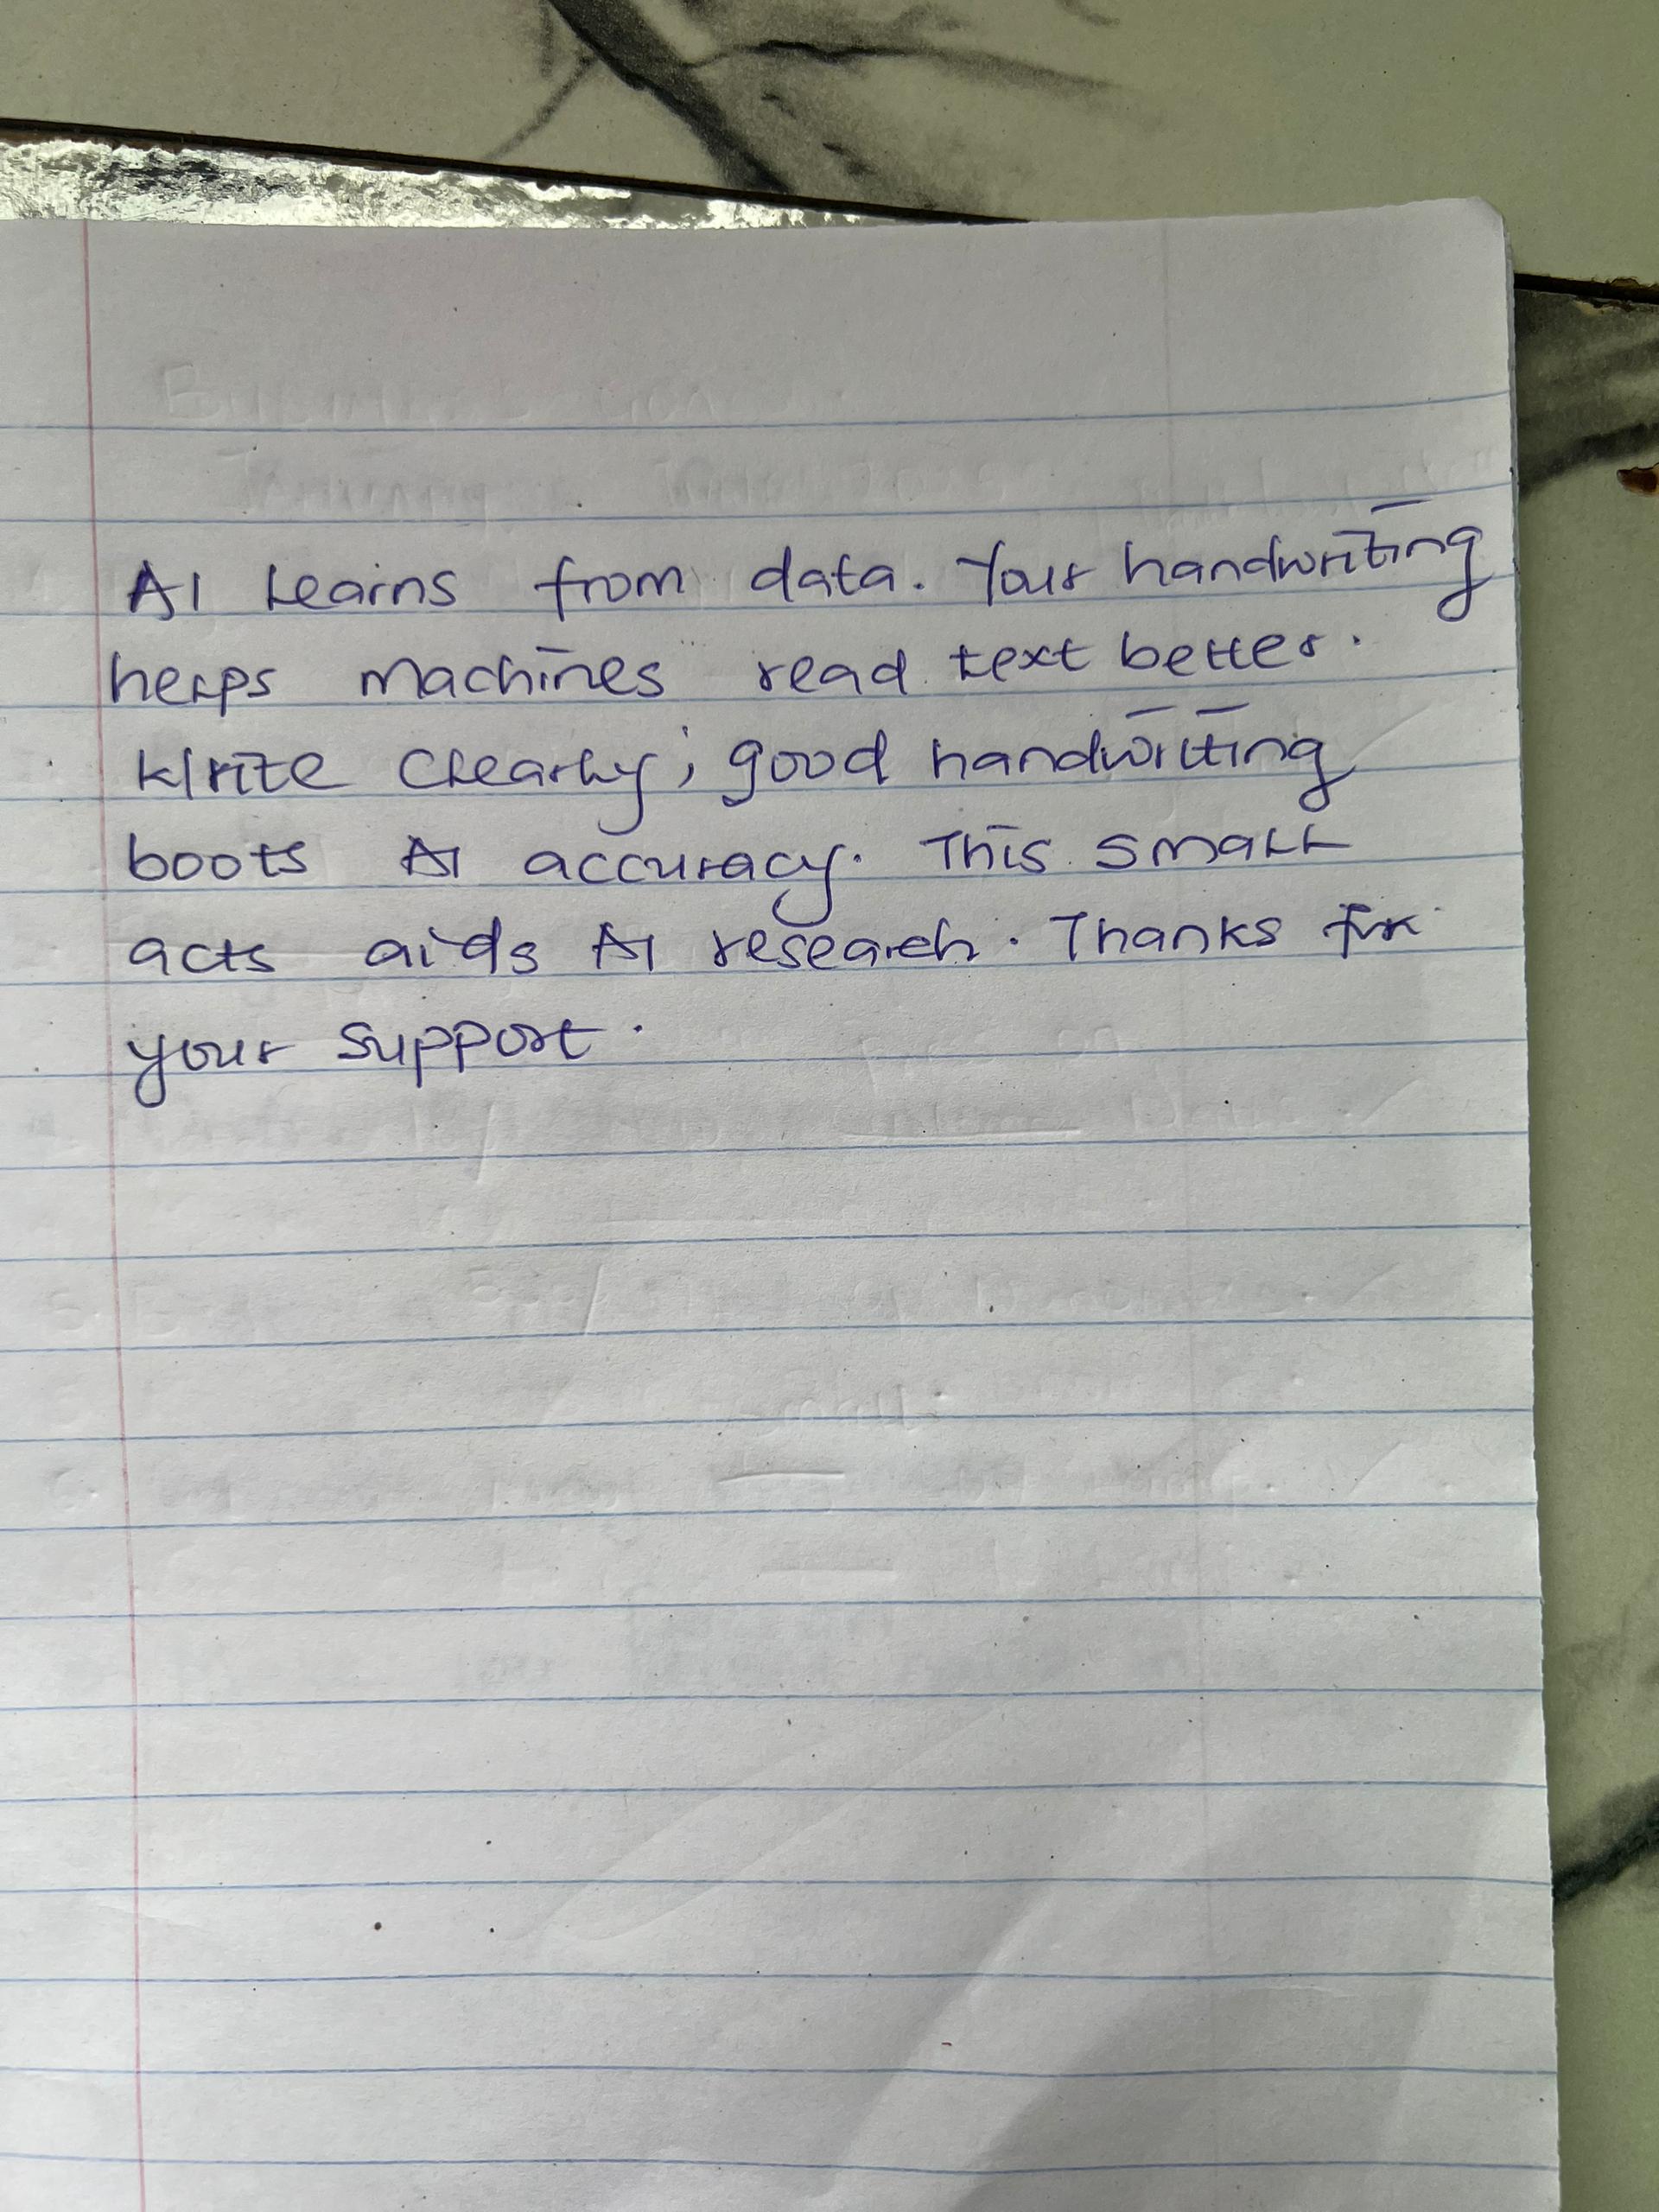 AI learns from data. Your handwriting
helps machines read text better.
Write clearly; good handwriting
boots AI accuracy. This small
acts aids AI research. Thanks for
your support.